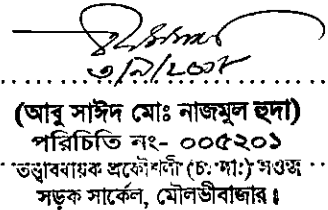 ৩/৯/২০০৮
(আবু সাঈদ মোঃ নাজমুল হুদা)
পরিচিতি নং- ০০৫২০১
তত্ত্বাবধায়ক প্রকৌশলী (চঃ দাঃ) সওজ
সড়ক সার্কেল, মৌলভীবাজার।